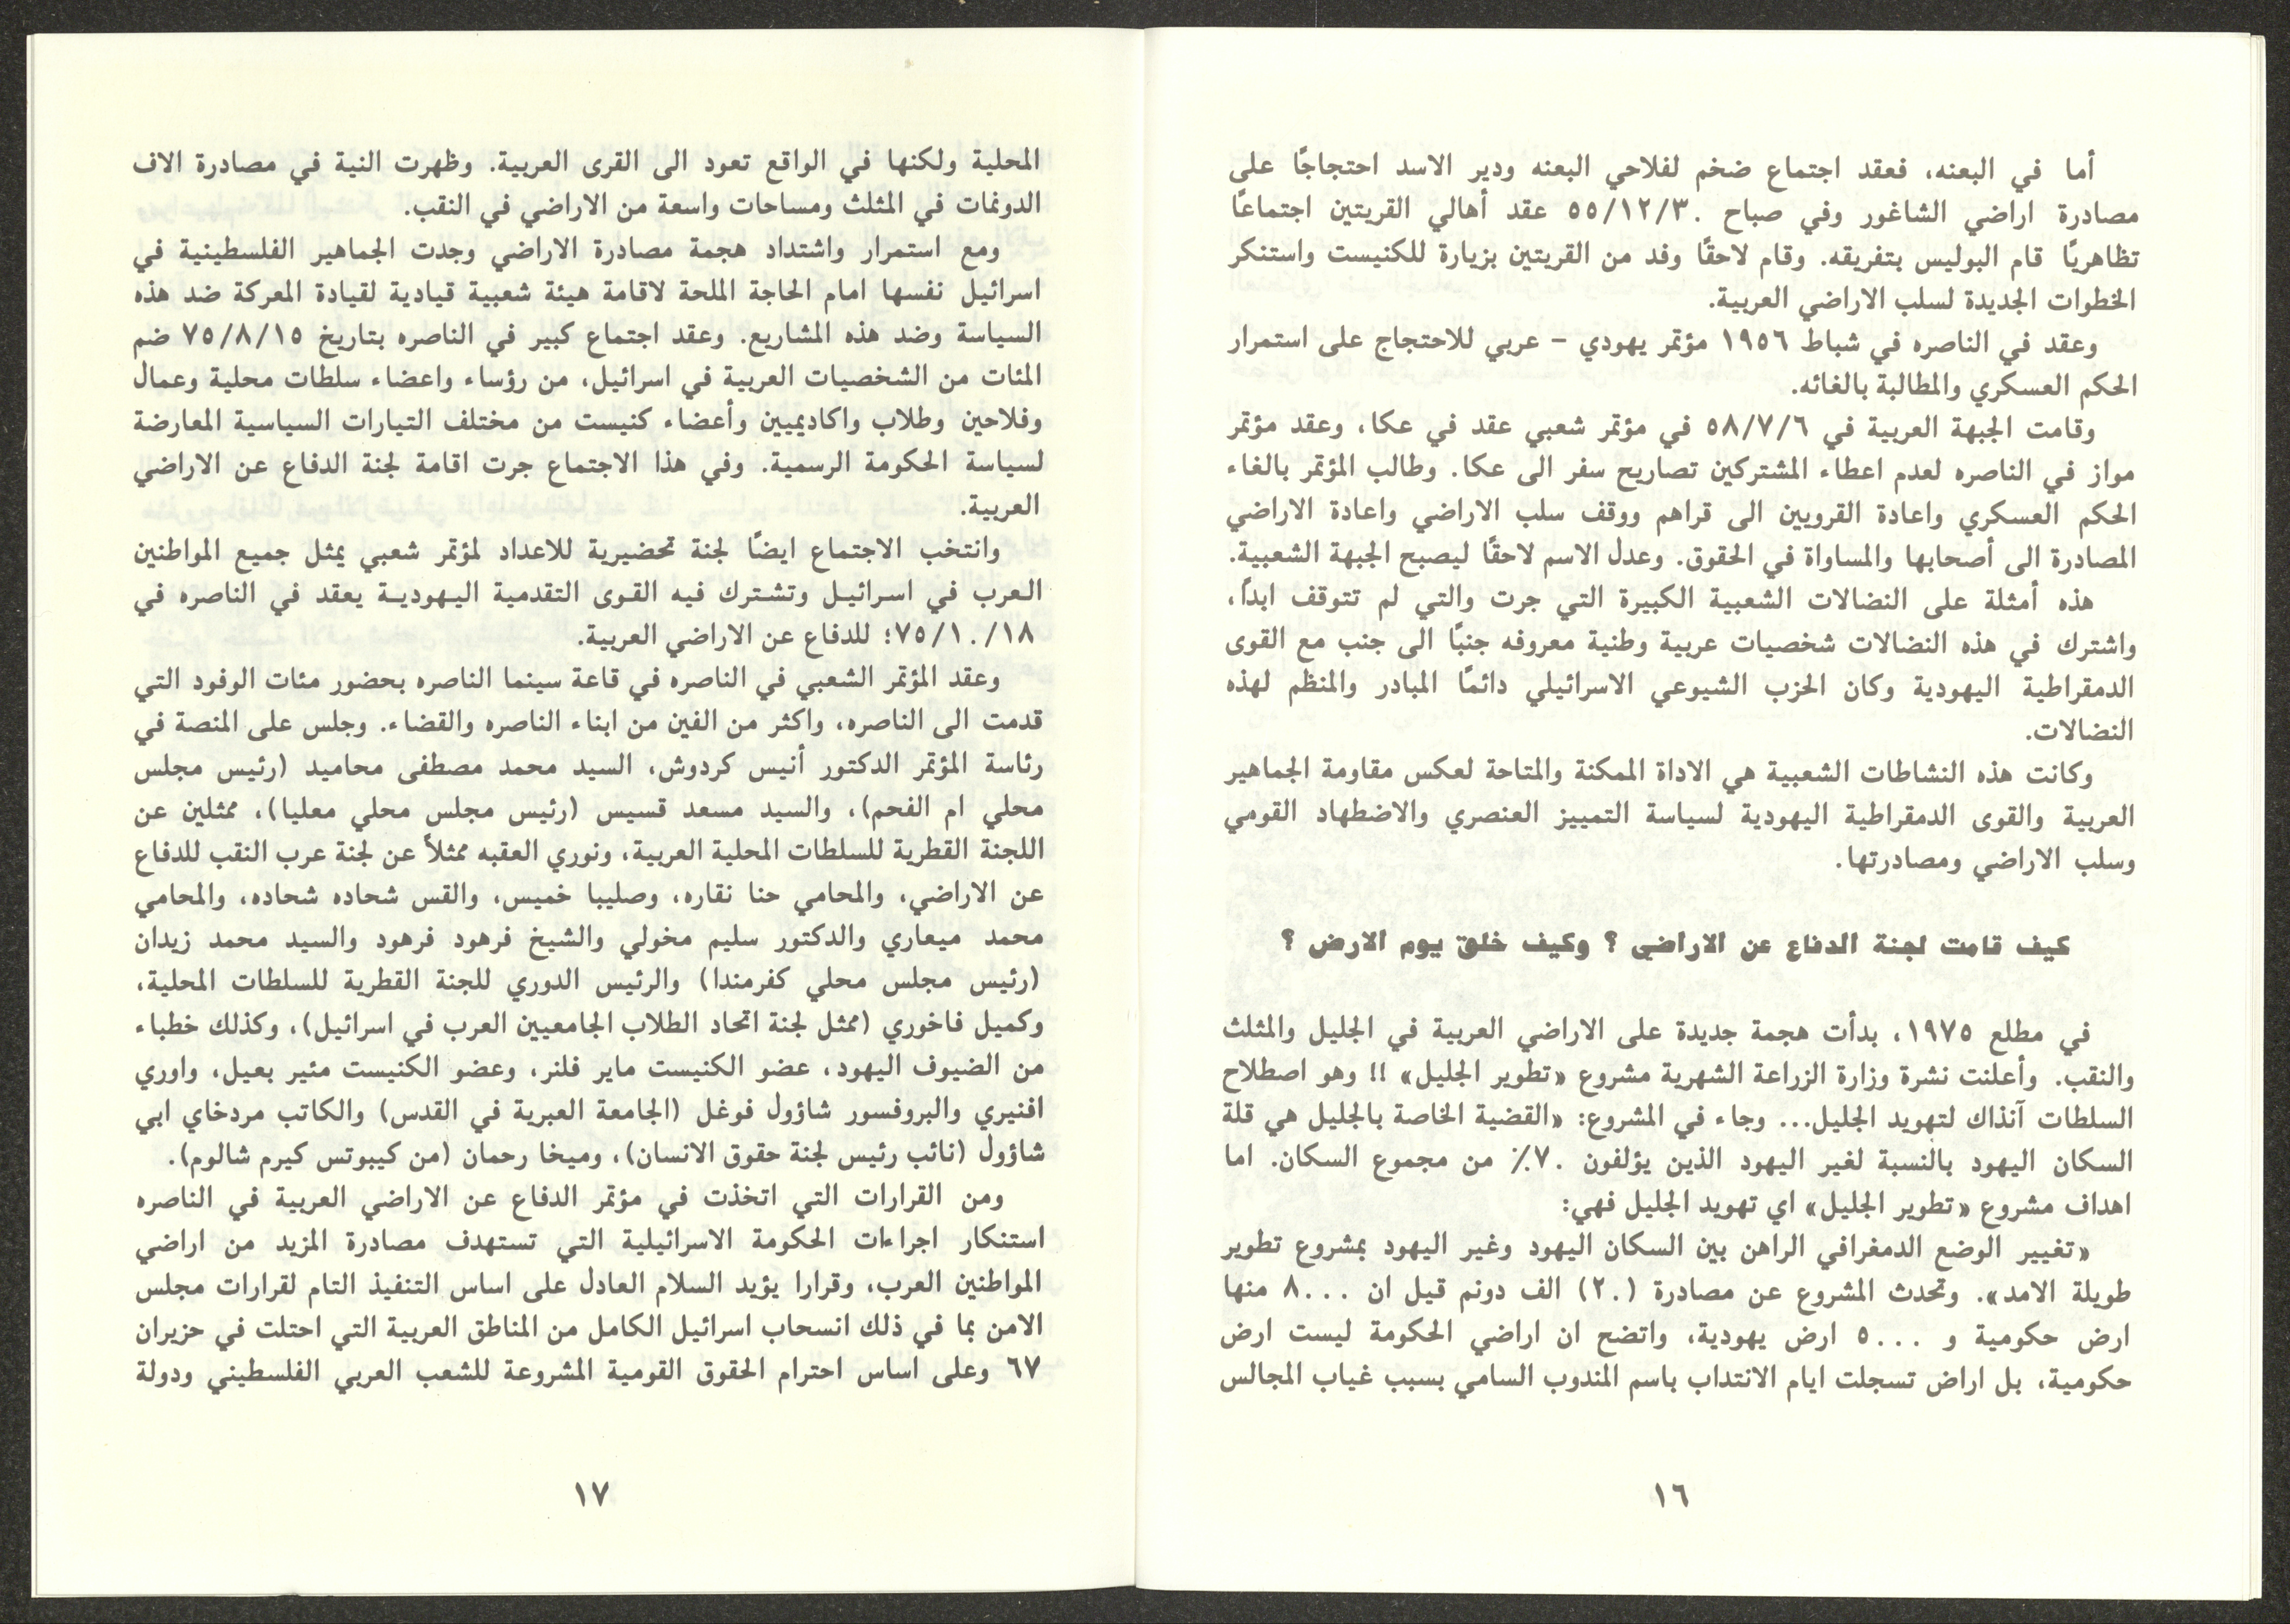 أما في البعنه، فعقد اجتماع ضخم لفلاحي البعنه ودير الاسد احتجاجًا على
مصادرة اراضي الشاغور وفي صباح ٥٥/١٢/٣٠ عقد أهالي القريتين اجتماعًا
تظاهريًا قام البوليس بتفريقه. وقام لاحقًا وفد من القريتين بزيارة للكنيست واستنكر
الخطوات الجديدة لسلب الاراضي العربية.
وعقد في الناصره في شباط ١٩٥٦ مؤتمر يهودي – عربي للاحتجاج على استمرار
الحكم العسكري والمطالبة بالغائه.
وقامت الجبهة العربية في ٥٨/٧/٦ في مؤتمر شعبي عقد في عكا، وعقد مؤتمر
مواز في الناصره لعدم اعطاء المشتركين تصاريح سفر الى عكا. وطالب المؤتمر بالغاء
الحكم العسكري واعادة القرويين الى قراهم ووقف سلب الاراضي واعادة الاراضي
المصادرة الى أصحابها والمساواة في الحقوق. وعدل الاسم لاحقًا ليصبح الجبهة الشعبية.
هذه أمثلة على النضالات الشعبية الكبيرة التي جرت والتي لم تتوقف ابدًا،
واشترك في هذه النضالات شخصيات عربية وطنية معروفه جنبًا الى جنب مع القوى
الدمقراطية اليهودية وكان الحزب الشيوعي الاسرائيلي دائمًا المبادر والمنظم لهذه
النضالات.
وكانت هذه النشاطات الشعبية هي الاداة الممكنة والمتاحة لعكس مقاومة الجماهير
العربية والقوى الدمقراطية اليهودية لسياسة التمييز العنصري والاضطهاد القومي
وسلب الاراضي ومصادرتها.
كيف قامت لجنة الدفاع عن الاراضي ؟ وكيف خلق يوم الارض ؟
في مطلع ١٩٧٥، بدأت هجمة جديدة على الاراضي العربية في الجليل والمثلث
والنقب. وأعلنت نشرة وزارة الزراعة الشهرية مشروع «تطوير الجليل» !! وهو اصطلاح
السلطات آنذاك لتهويد الجليل... وجاء في المشروع: «القضية الخاصة بالجليل هي قلة
السكان اليهود بالنسبة لغير اليهود الذين يؤلفون ٧٠٪ من مجموع السكان. اما
اهداف مشروع «تطوير الجليل» اي تهويد الجليل فهي:
«تغيير الوضع الدمغرافي الراهن بين السكان اليهود وغير اليهود بمشروع تطوير
طويلة الامد». وتحدث المشروع عن مصادرة (٢٠) الف دونم قيل ان ٨٠٠٠ منها
ارض حكومية و ٥٠٠٠ ارض يهودية، واتضح ان اراضي الحكومة ليست ارض
حكومية، بل اراض تسجلت ايام الانتداب باسم المندوب السامي بسبب غياب المجالس
١٦
المحلية ولكنها في الواقع تعود الى القرى العربية. وظهرت النية في مصادرة الاف
الدونمات في المثلث ومساحات واسعة من الاراضي في النقب.
ومع استمرار واشتداد هجمة مصادرة الاراضي وجدت الجماهير الفلسطينية في
اسرائيل نفسها امام الحاجة الملحة لاقامة هيئة شعبية قيادية لقيادة المعركة ضد هذه
السياسة وضد هذه المشاريع. وعقد اجتماع كبير في الناصره بتاريخ ٧٥/٨/١٥ ضم
المئات من الشخصيات العربية في اسرائيل، من رؤساء واعضاء سلطات محلية وعمال
وفلاحين وطلاب واكاديميين وأعضاء كنيست من مختلف التيارات السياسية المعارضة
لسياسة الحكومة الرسمية. وفي هذا الاجتماع جرت اقامة لجنة الدفاع عن الاراضي
العربية.
وانتخب الاجتماع ايضًا لجنة تحضيرية للاعداد لمؤتمر شعبي يمثل جميع المواطنين
العرب في اسرائيل وتشترك فيه القوى التقدمية اليهودية يعقد في الناصره في
٧٥/١٠/١٨؛ للدفاع عن الاراضي العربية.
وعقد المؤتمر الشعبي في الناصره في قاعة سينما الناصره بحضور مئات الوفود التي
قدمت الى الناصره، واكثر من الفين من ابناء الناصره والقضاء. وجلس على المنصة في
رئاسة المؤتمر الدكتور أنيس كردوش، السيد محمد مصطفى محاميد (رئيس مجلس
محلي ام الفحم)، والسيد مسعد قسيس (رئيس مجلس محلي معليا)، ممثلين عن
اللجنة القطرية للسلطات المحلية العربية، ونوري العقبه ممثلاً عن لجنة عرب النقب للدفاع
عن الاراضي، والمحامي حنا نقاره، وصليبا خميس، والقس شحاده شحاده، والمحامي
محمد ميعاري والدكتور سليم مخولي والشيخ فرهود فرهود والسيد محمد زيدان
(رئيس مجلس محلي كفرمندا) والرئيس الدوري للجنة القطرية للسلطات المحلية،
وكميل فاخوري (ممثل لجنة اتحاد الطلاب الجامعيين العرب في اسرائيل)، وكذلك خطباء
من الضيوف اليهود، عضو الكنيست ماير فلنر، وعضو الكنيست مئير بعيل، واوري
افنيري والبروفسور شاؤول فوغل (الجامعة العبرية في القدس) والكاتب مردخاي ابي
شاؤول (نائب رئيس لجنة حقوق الانسان)، وميخا رحمان (من كيبوتس كيرم شالوم).
ومن القرارات التي اتخذت في مؤتمر الدفاع عن الاراضي العربية في الناصره
استنكار اجراءات الحكومة الاسرائيلية التي تستهدف مصادرة المزيد من اراضي
المواطنين العرب، وقرارا يؤيد السلام العادل على اساس التنفيذ التام لقرارات مجلس
الامن بما في ذلك انسحاب اسرائيل الكامل من المناطق العربية التي احتلت في حزيران
٦٧ وعلى اساس احترام الحقوق القومية المشروعة للشعب العربي الفلسطيني ودولة
١٧